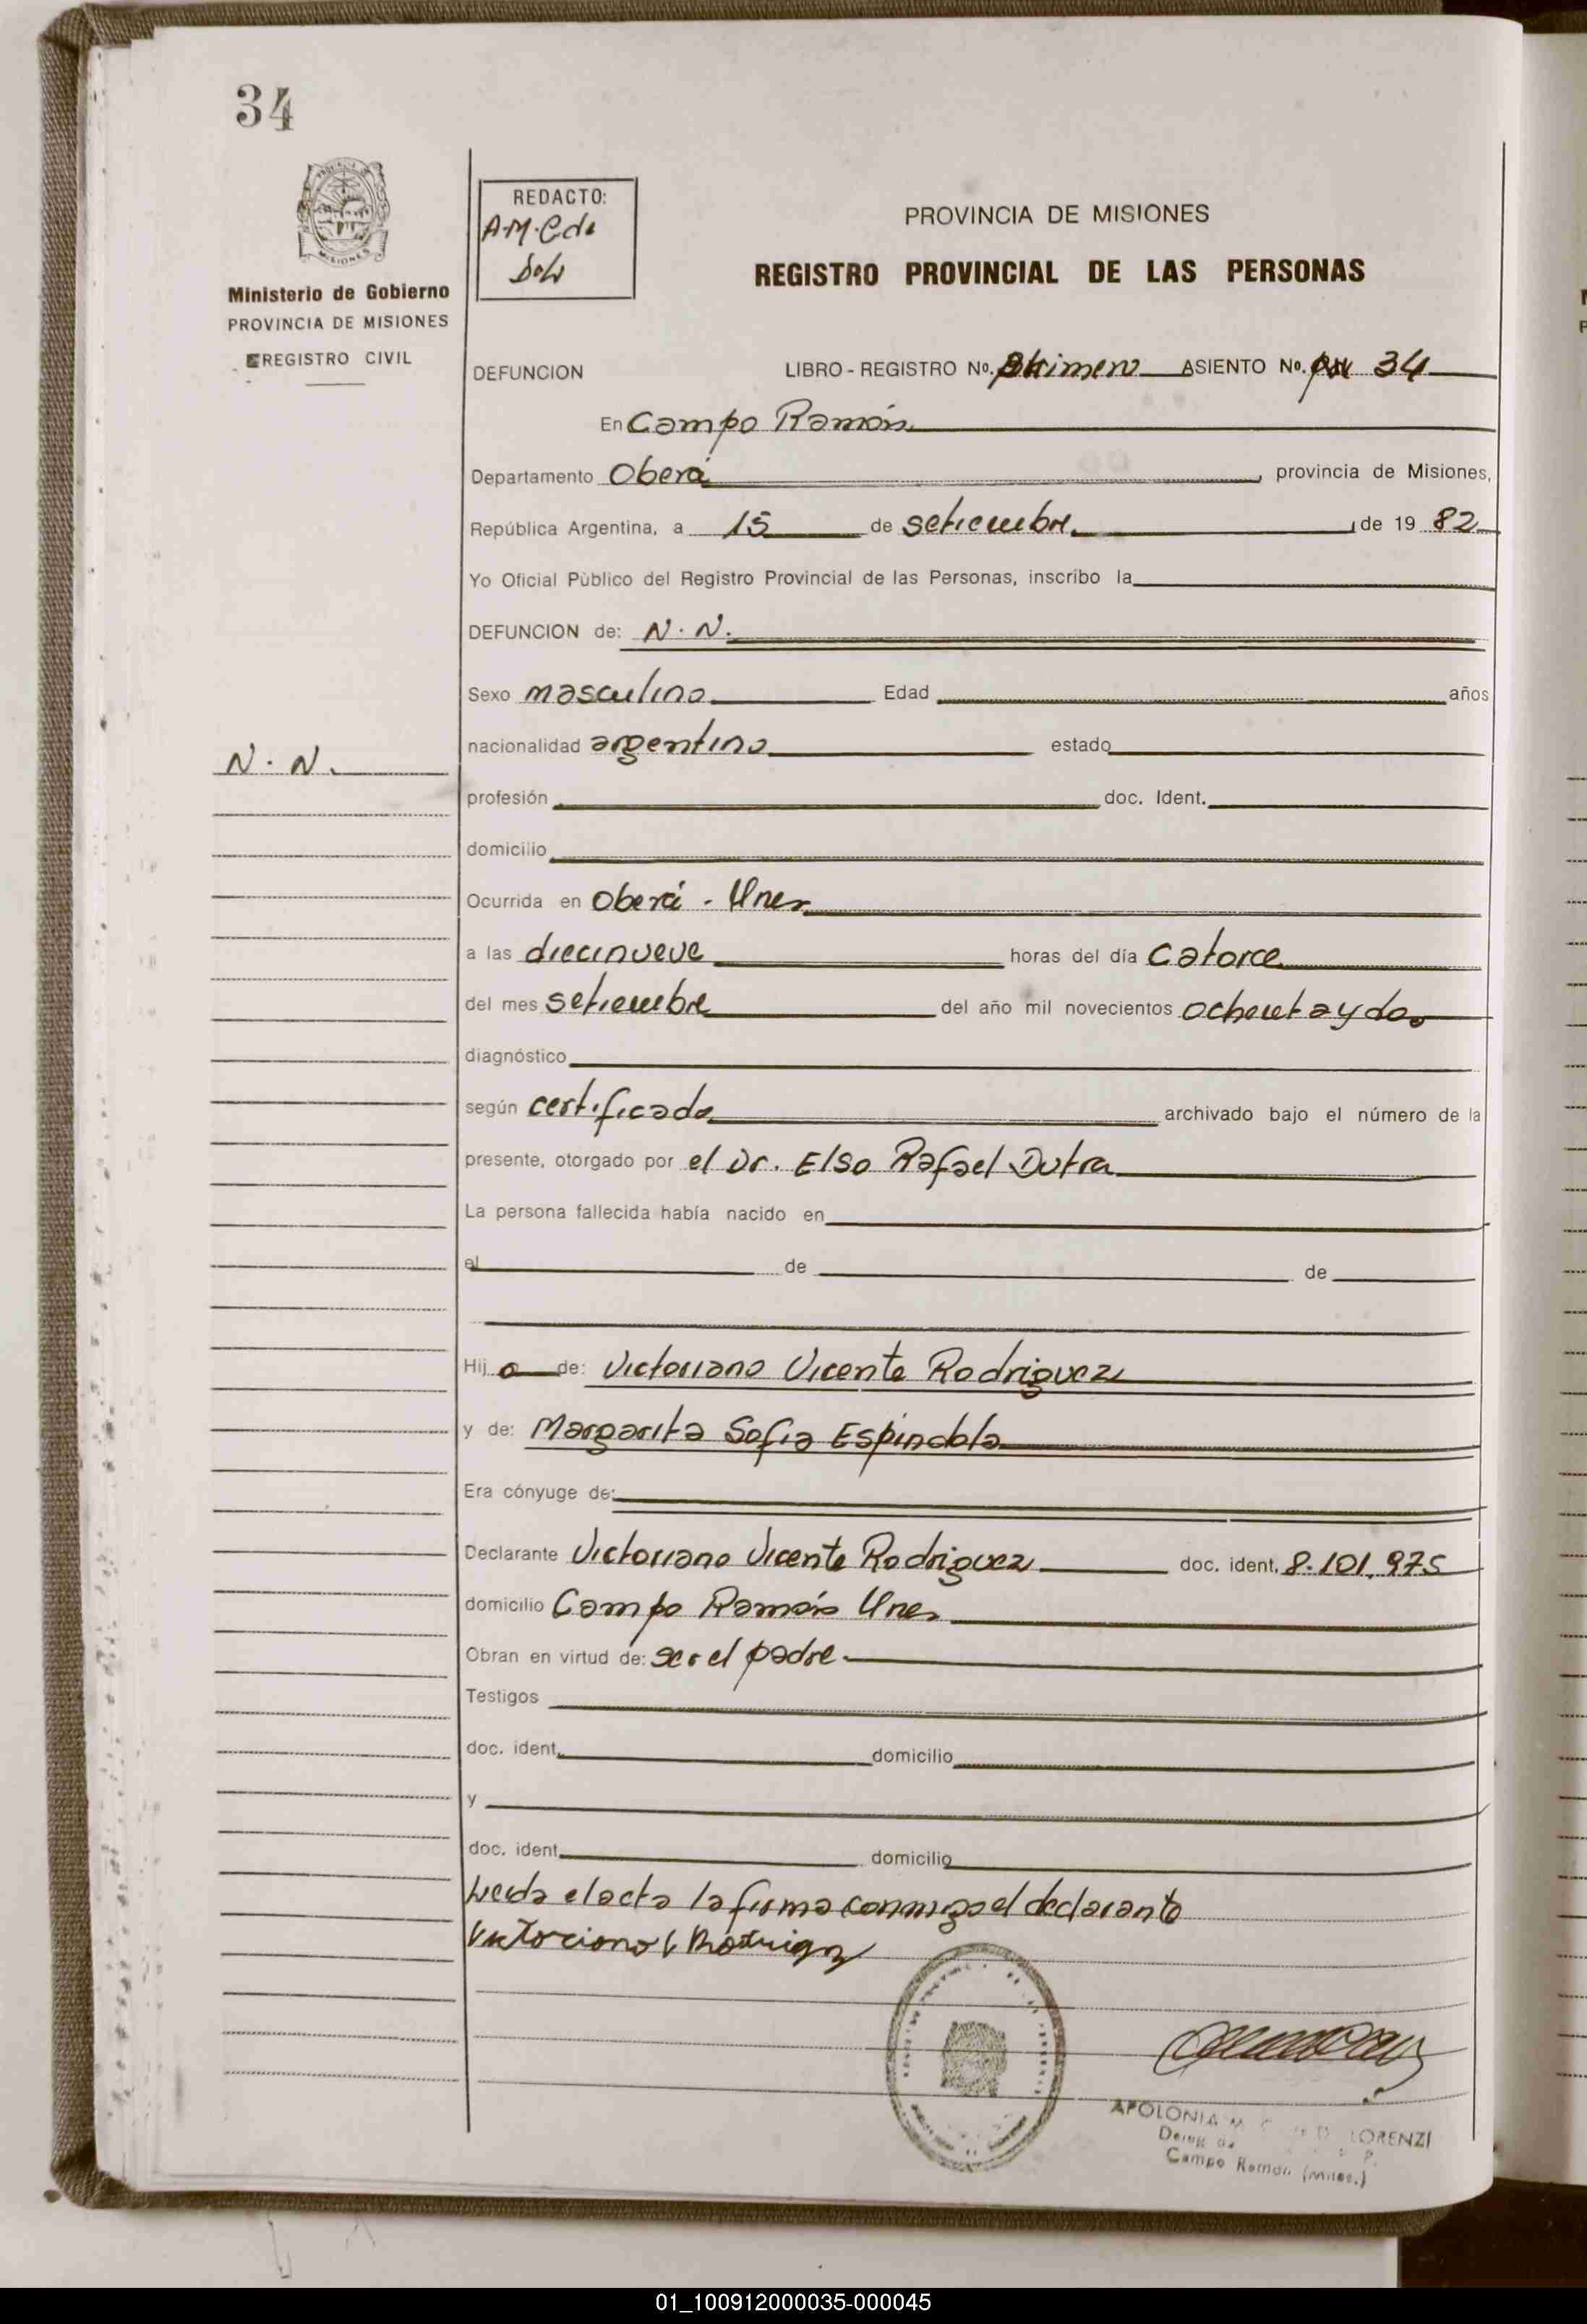 34
REDACTO:
A.M.C de
MISIONES
Ministerio de Gobierno
PROVINCIA DE MISIONES
REGISTRO CIVIL
PROVINCIA DE MISIONES
REGISTRO PROVINCIAL DE LAS PERSONAS
DEFUNCION LIBRO - REGISTRO No. Primero ASIENTO No. 34
En Campo Ramón
Departamento Oberá, provincia de Misiones,
República Argentina, a 15 de setiembre, de 19 82
Yo Oficial Público del Registro Provincial de las Personas, inscribo la
DEFUNCION de: N. N.
Sexo masculino Edad años
nacionalidad argentino estado
N. N.
profesión doc. Ident.
domicilio
Ocurrida en Oberá - Mnes
a las diecinueve horas del día catorce
del mes setiembre del año mil novecientos ochenta y dos
diagnóstico
según certificado archivado bajo el número de la
presente, otorgado por el Dr. Elso Rafael Dutra
La persona fallecida había nacido en
el de de
Hij o de: Victoriano Vicente Rodriguez
y de: Margarita Sofia Espindola
Era cónyuge de:
Declarante Victoriano Vicente Rodriguez doc. ident. 8.101.975
domicilio Campo Ramón Mnes
Obran en virtud de: ser el padre.
Testigos
doc. ident. domicilio
y
doc. ident. domicilio
Leida el acta la firma conmigo el declarante
Victoriano V Rodriguez
APOLONIA M. LORENZI
Campo Ramón (Mnes.)
01_100912000035-000045